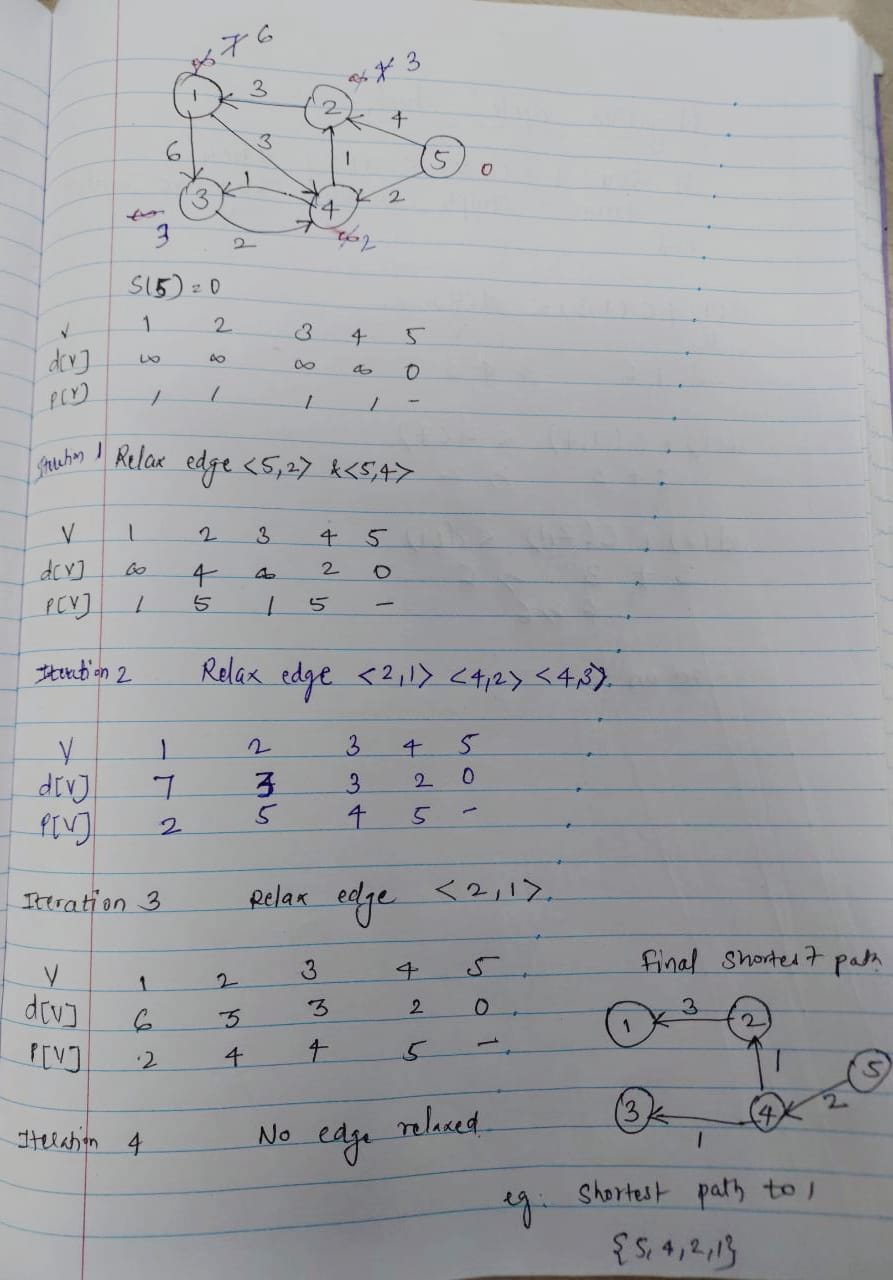 ∞ 7 6
∞ 4 3
1 3 2 4
6 3 1 5 0
3 1 4 2
∞ 3 2 ∞ 2
S(5) = 0
V 1 2 3 4 5
d[V] ∞ ∞ ∞ ∞ 0
P[V] / / / / -
1 Relax edge <5,2> & <5,4>
V 1 2 3 4 5
d[V] ∞ 4 ∞ 2 0
P[V] / 5 / 5 -
Iteration 2 Relax edge <2,1> <4,2> <4,3>.
V 1 2 3 4 5
d[V] 7 3 3 2 0
P[V] 2 5 4 5 -
Iteration 3 Relax edge <2,1>.
V 1 2 3 4 5
d[V] 6 3 3 2 0
P[V] 2 4 4 5 -
Iteration 4 No edge relaxed
Final Shortest path
1 3 2
1 5
3 1 4 2
eg: Shortest path to 1
{5,4,2,1}